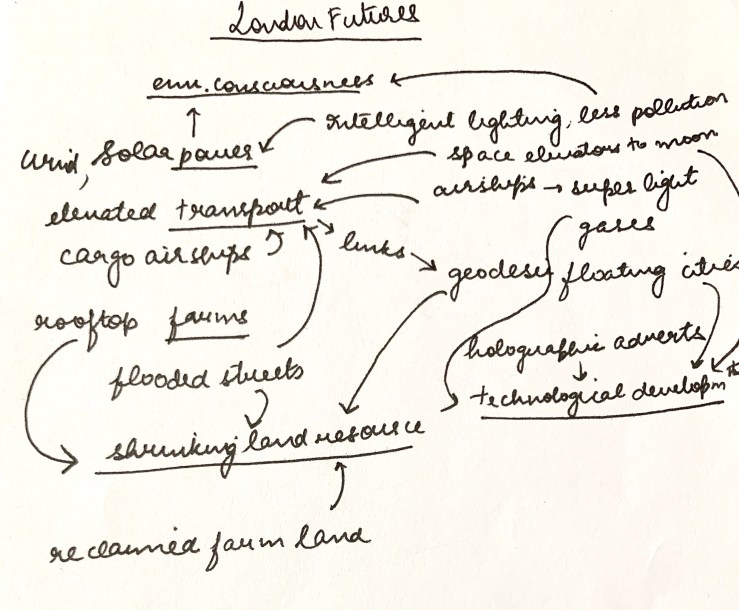 London Futures
env. consciousness
Intelligent lighting, less pollution
wind, solar power
space elevators to moon
elevated transport
airships → super light
gases
cargo airships
links
geodesy floating cities
rooftop farms
holographic adverts
flooded streets
technological developmts
shrinking land resource
reclaimed farm land